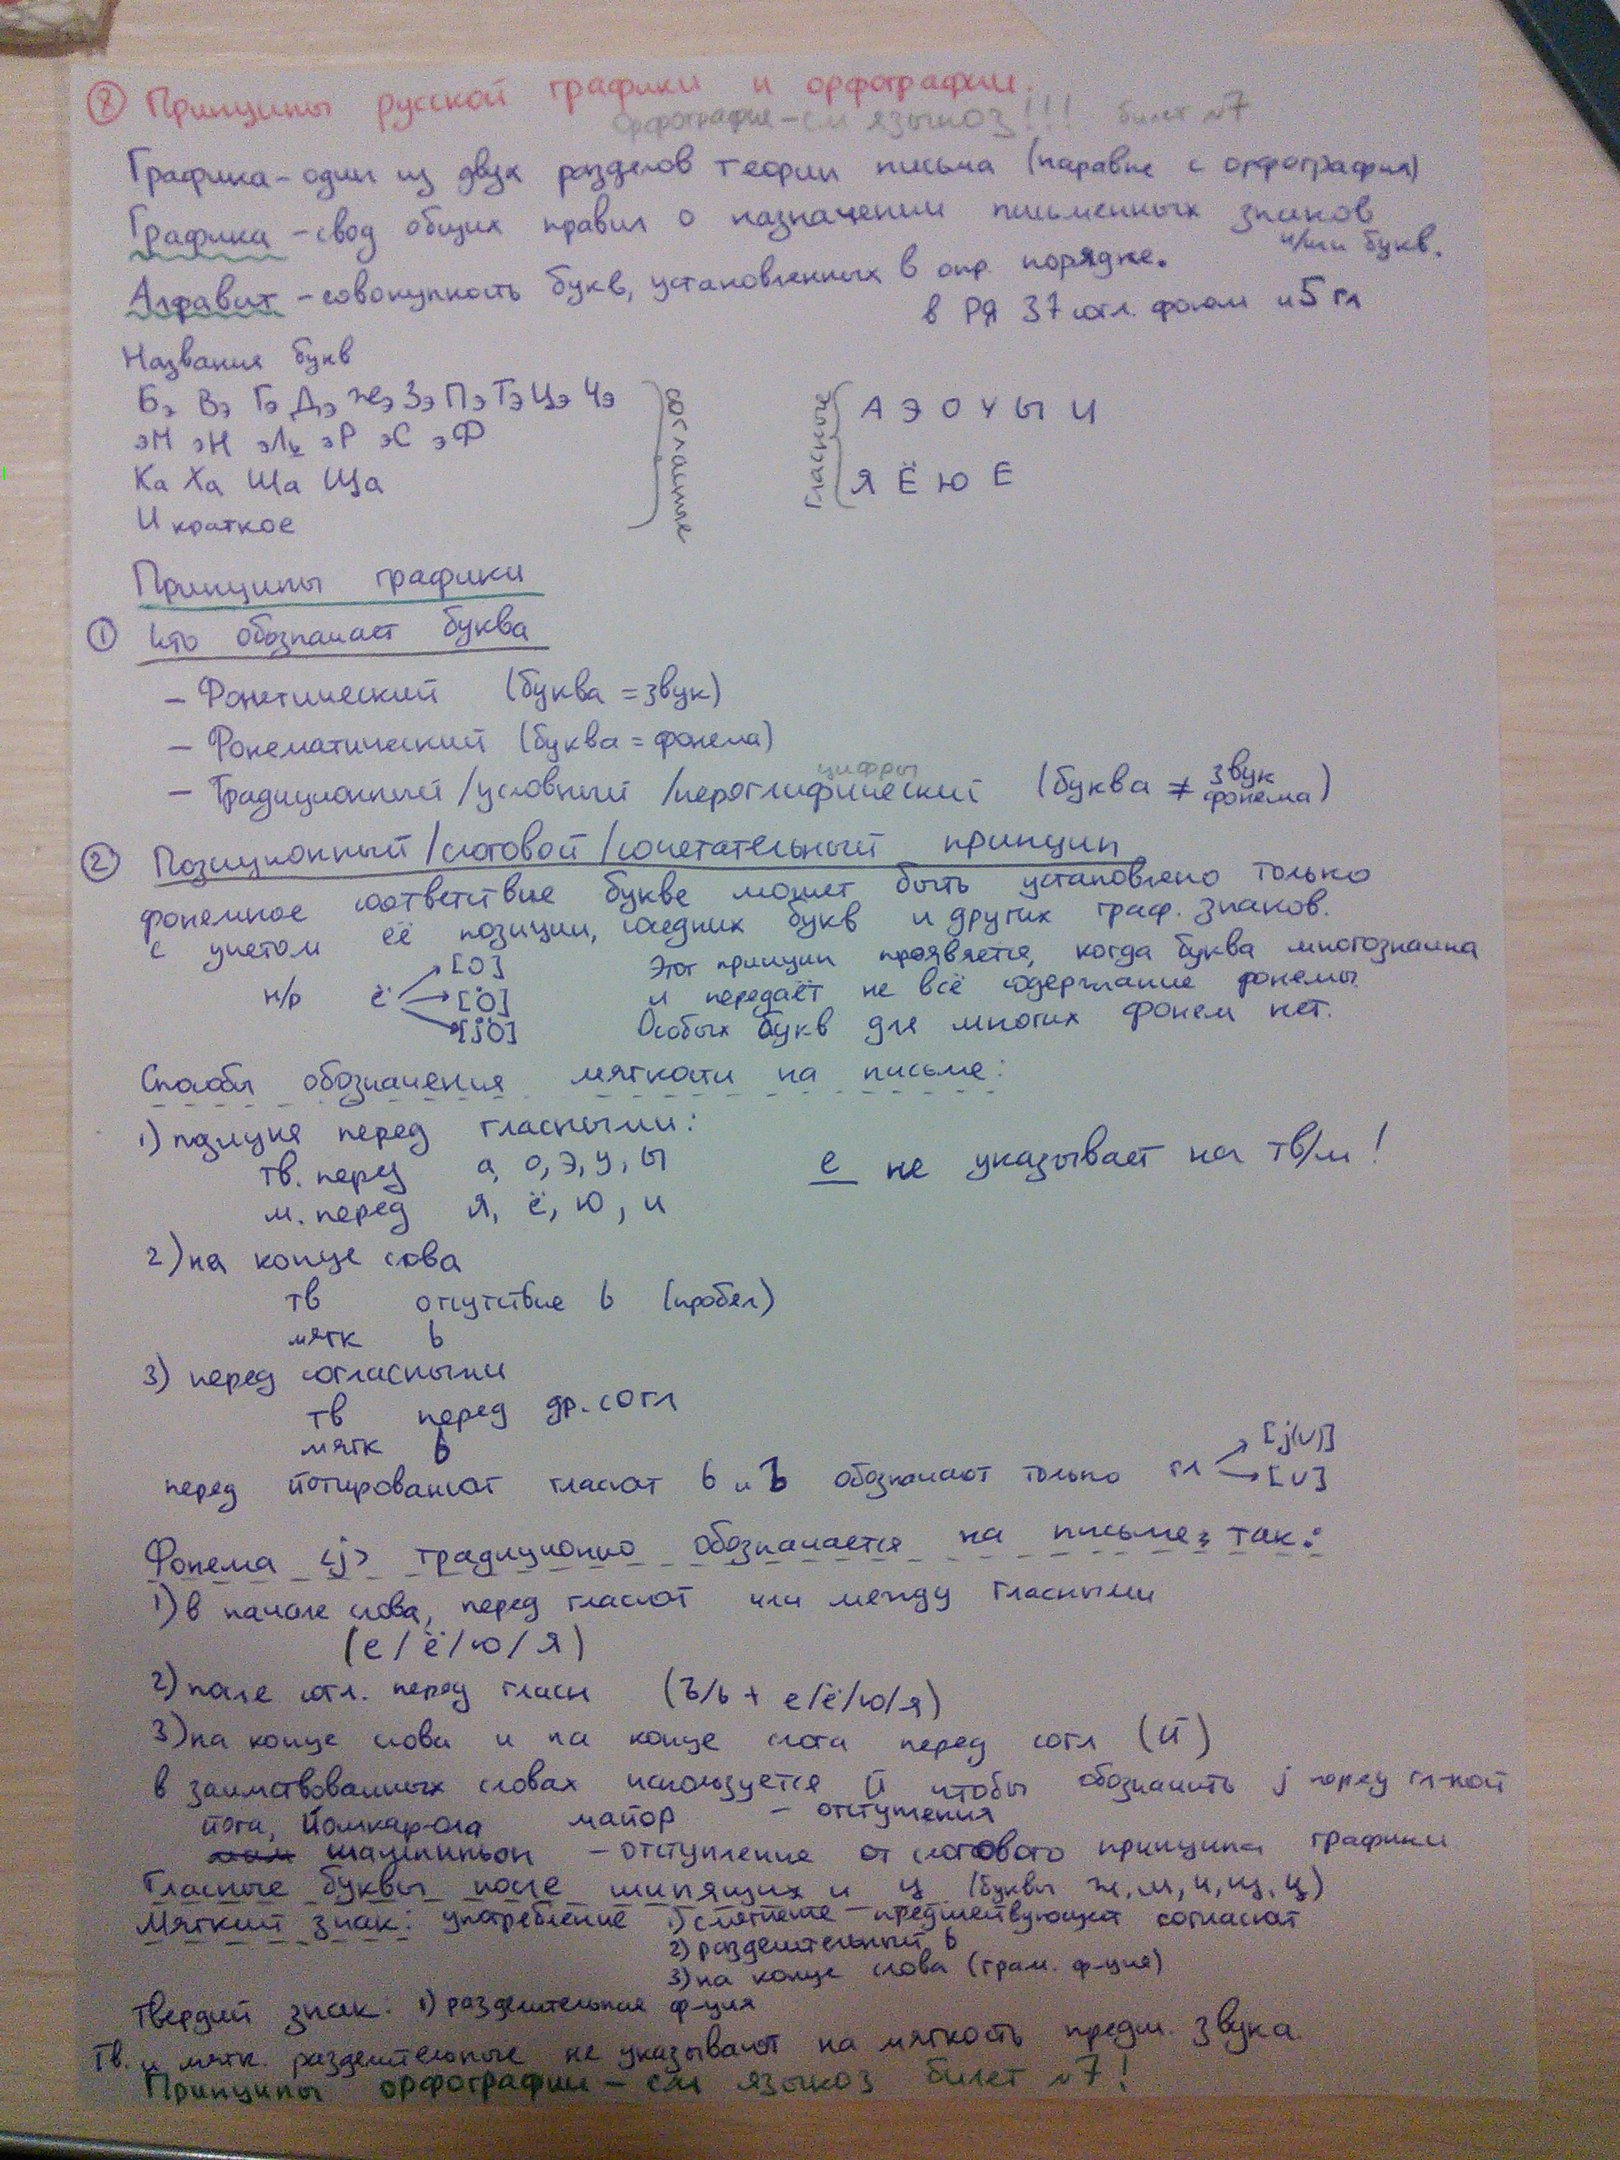 8 Принципы русской графики и орфографии.
Орфография – см языкоз!!! билет №7
Графика – один из двух разделов теории письма (наравне с орфография)
Графика – свод общих правил о назначении письменных знаков
и/или букв.
Алфавит – совокупность букв, установленных в опр. порядке.
в РЯ 37 согл. фонем и 5 гл
Названия букв
Бэ Вэ Гэ Дэ Жэ Зэ Пэ Тэ Цэ Чэ
эМ эН эЛь эР эС эФ
Ка Ха Ша Ща
И краткое
согласные
гласные
А Э О У Ы И
Я Ё Ю Е
Принципы графики
1 Что обозначает буква
– Фонетический (буква = звук)
– Фонематический (буква = фонема)
цифры
– Традиционный / условный / иероглифический (буква ≠ звук фонема)
2 Позиционный / слоговой / сочетательный принцип
фонемное соответствие букве может быть установлено только
с учетом её позиции, соседних букв и других граф. знаков.
н/р ё [О] [Ö] [jÖ]
Этот принцип проявляется, когда буква многозначна
и передаёт не всё содержание фонемы.
Особых букв для многих фонем нет.
Способы обозначения мягкости на письме:
1) позиция перед гласными:
тв. перед а, о, э, у, ы
м. перед я, ё, ю, и
е не указывает на тв/м!
2) на конце слова
тв отсутствие ь (пробел)
мягк ь
3) перед согласными
тв перед др. согл
мягк ь
перед йотированной гласной ь и ъ обозначают только гл [j(v)] [v]
Фонема <j> традиционно обозначается на письме так:
1) в начале слова, перед гласной или между гласными
(е / ё / ю / я)
2) после согл. перед гласн (ъ/ь + е/ё/ю/я)
3) на конце слова и на конце слога перед согл (й)
в заимствованных словах используется Й чтобы обозначить j перед гл-ной
йога, Йошкар-ола майор – отступления
шампиньон – отступление от слогового принципа графики
Гласные буквы после шипящих и ц (буквы ж, ш, ч, щ, ц)
Мягкий знак: употребление 1) смягчение предшествующей согласной
2) разделительный ь
3) на конце слова (грам. ф-ция)
Твердый знак: 1) разделительная ф-ция
Тв. и мягк. разделительные не указывают на мягкость предш. звука.
Принципы орфографии – см языкоз билет №7!